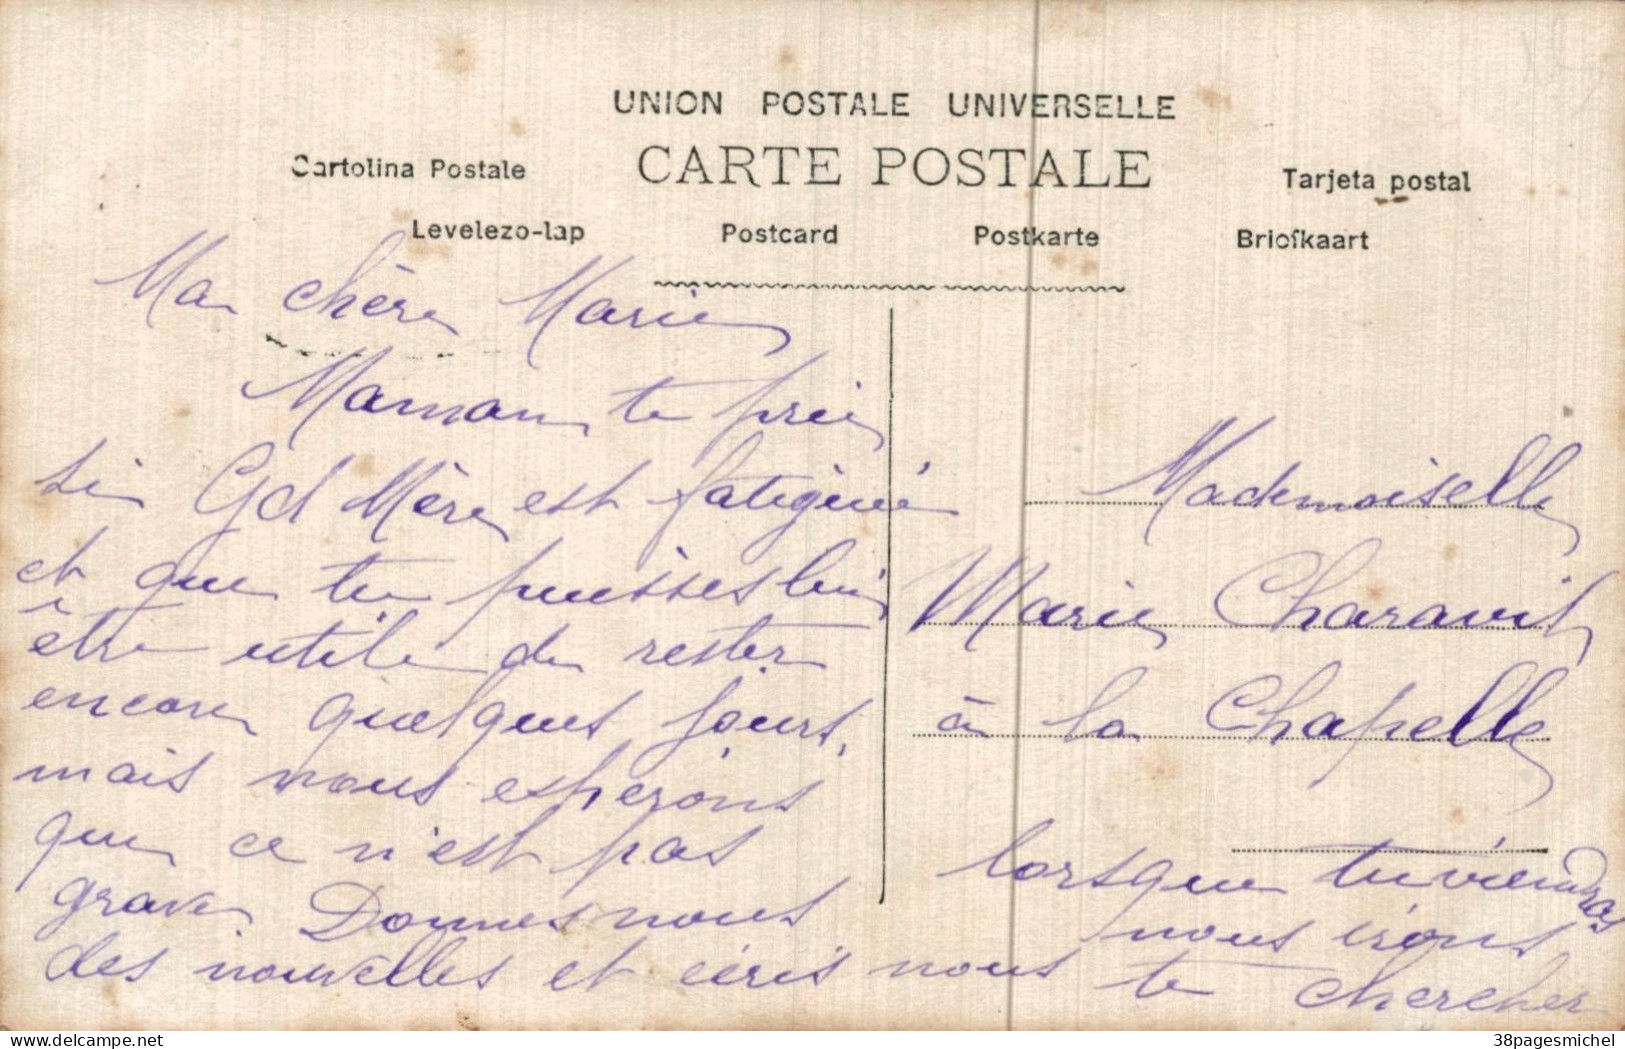 UNION POSTALE UNIVERSELLE
CARTE POSTALE
Cartolina Postale
Tarjeta postal
Levelezo-lap
Postcard
Postkarte
Briefkaart
Ma chère Marie
Maman te prie
si Gd Mère est fatiguée
et que tu puisses lui
être utile de rester
encore quelques jours,
mais nous espérons
que ce n'est pas
grave. Donnes nous
des nouvelles et écris nous
Mademoiselle
Marie Charavit
à la Chapelle
lorsque tu viendras
nous irons
te chercher
38pagesmichel